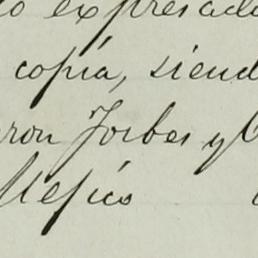 o expresado
copia, siend
rron Forbes y C
Mejico